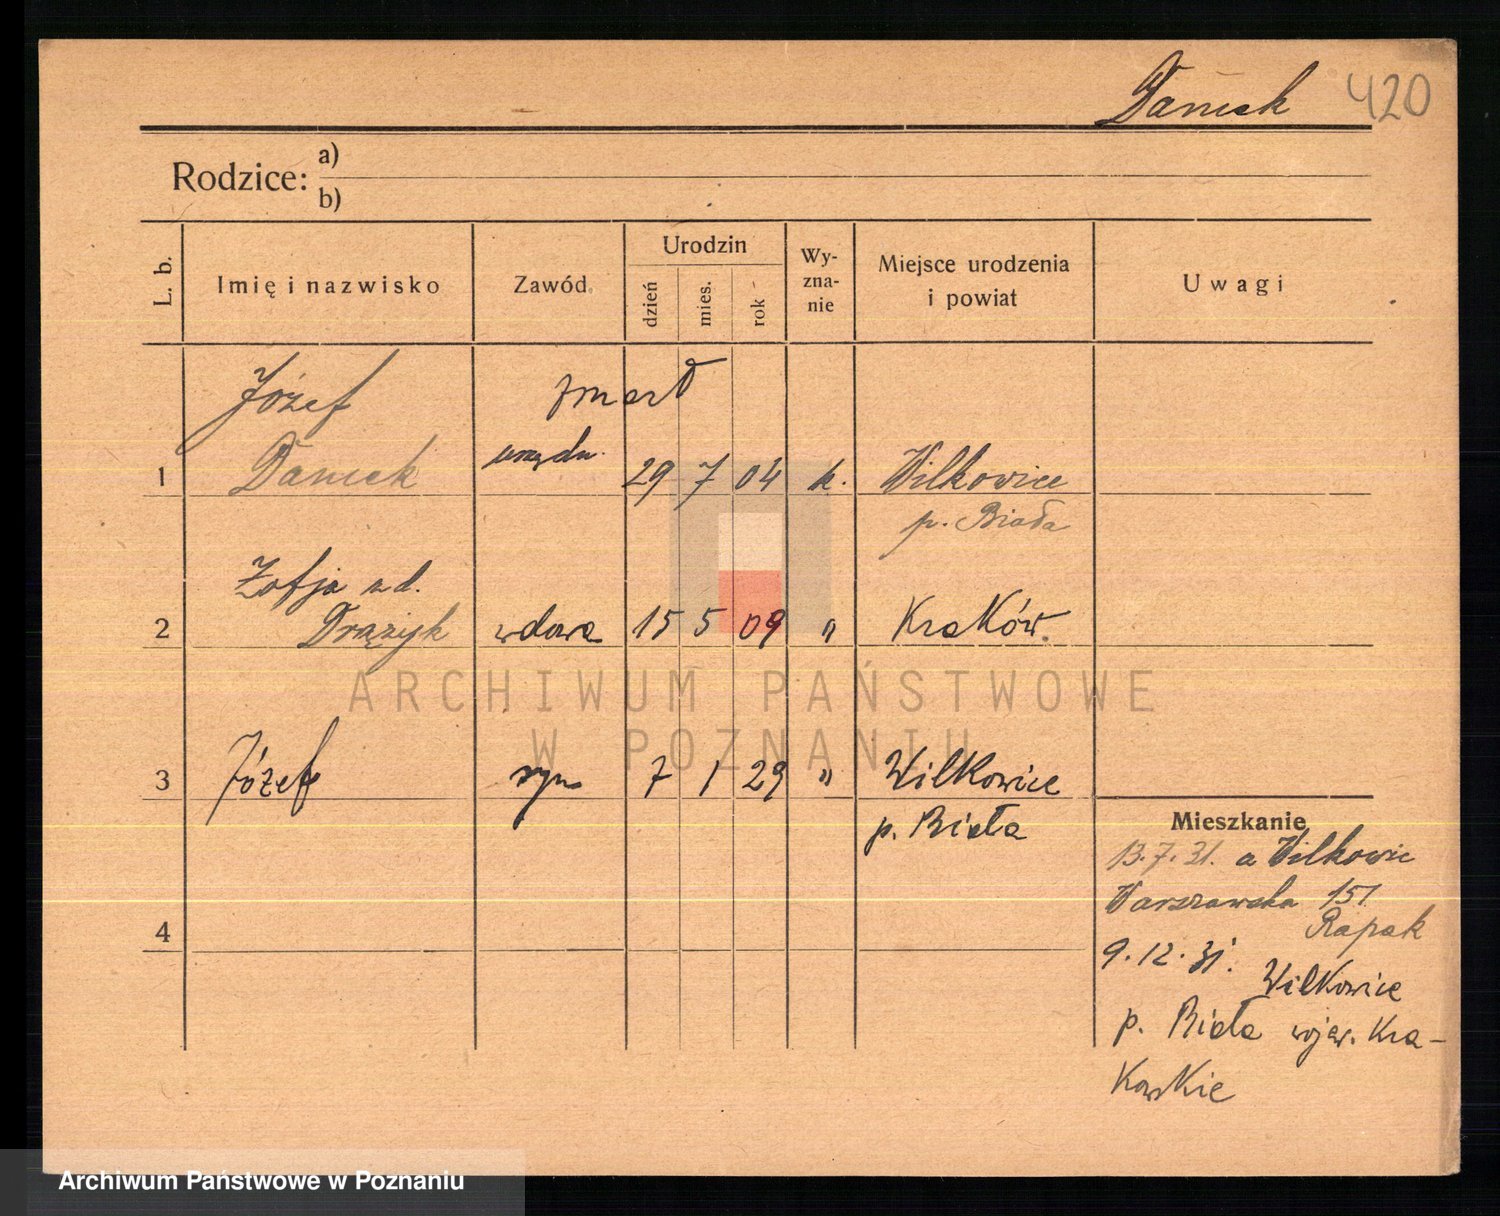 Danek 420
Rodzice: a)
b)
L. b. Imię i nazwisko Zawód Urodzin dzień mies. rok Wy-zna-nie Miejsce urodzenia i powiat Uwagi
Józef zmarł
1 Danek urzędn. 29 7 04 k. Wilkowice
p. Biała
Zofja ud.
2 Drązyk wdowa 15 5 09 " Kraków.
ARCHIWUM PAŃSTWOWE
W POZNANIU
3 Józef syn 7 1 29 " Wilkowice
p. Biała
Mieszkanie
13.7.31. a Wilkowic
Warszawska 151
4 Rapak
9.12.31. Wilkowice
p. Biała wojew. Kra-
kowskie
Archiwum Państwowe w Poznaniu